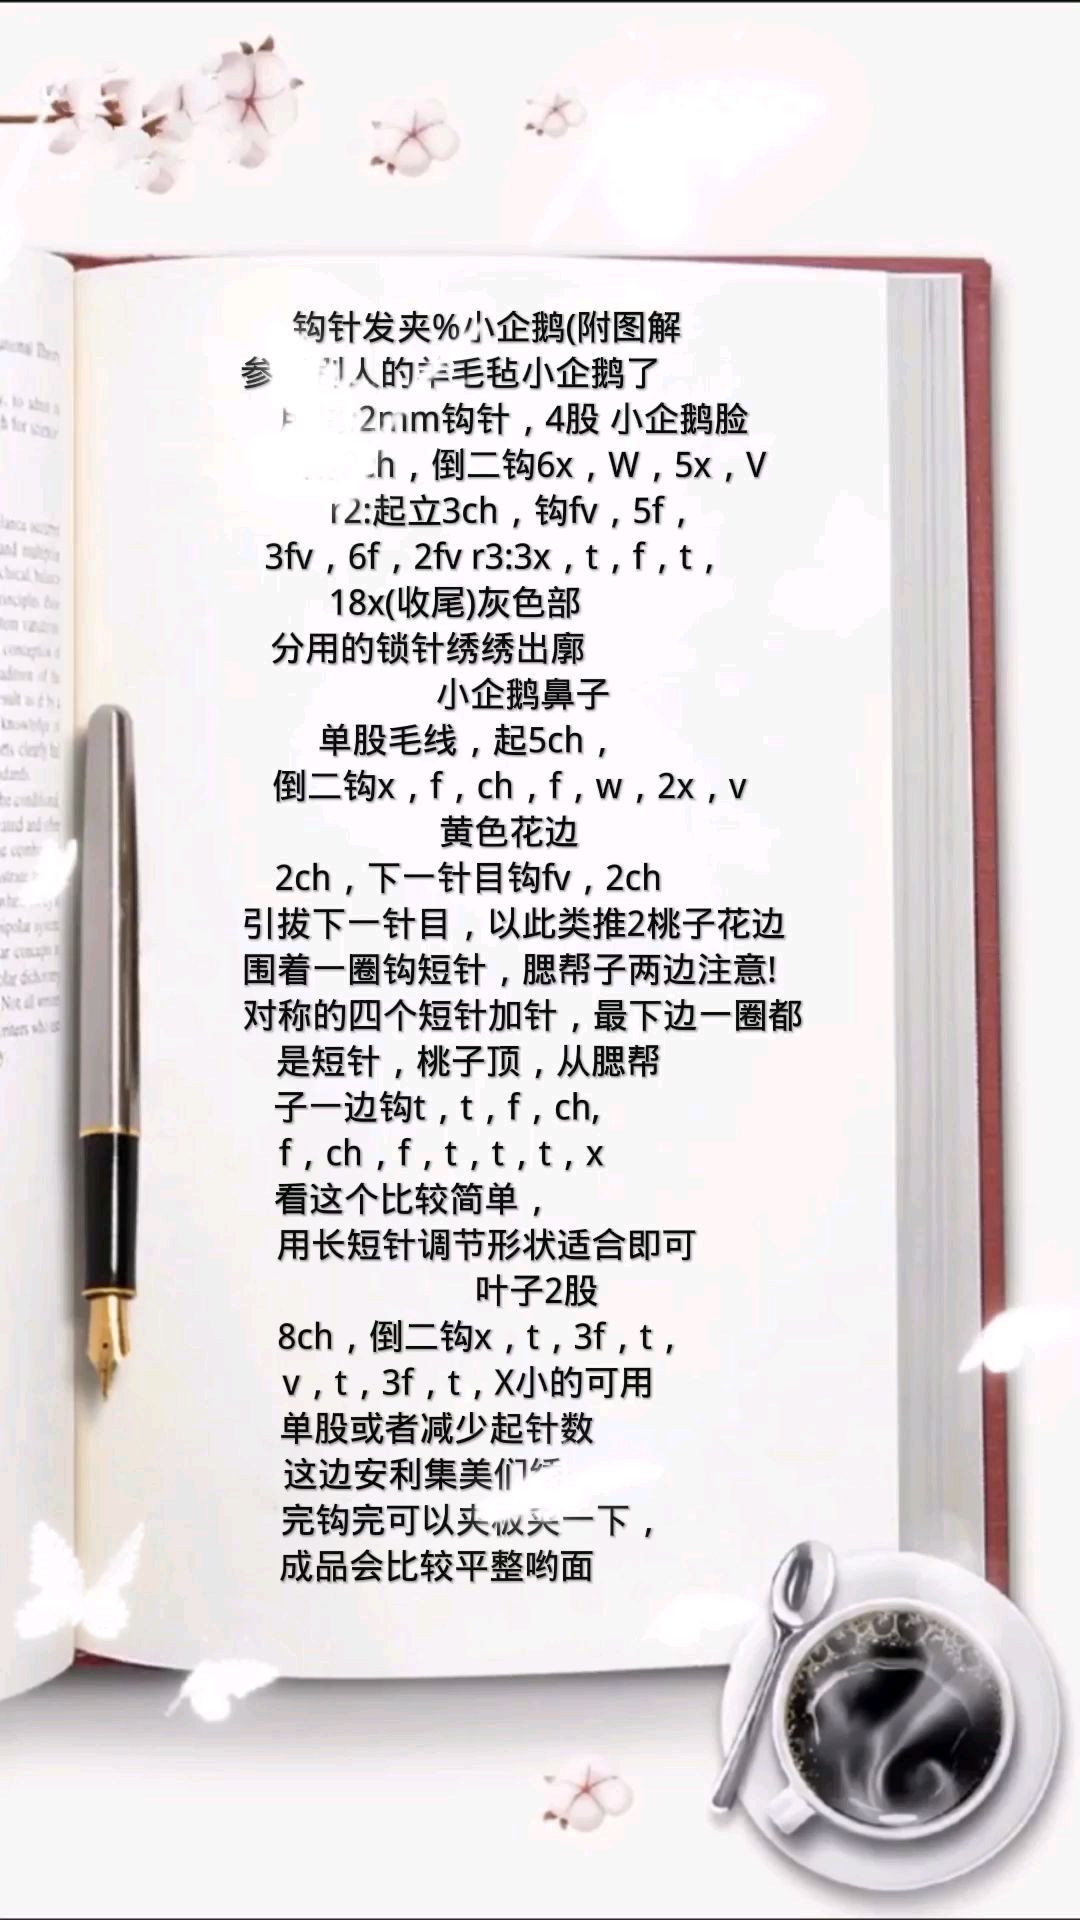 钩针发夹%小企鹅(附图解
参 别人的羊毛毡小企鹅了
2mm钩针，4股 小企鹅脸
ch，倒二钩6x，W，5x，V
r2:起立3ch，钩fv，5f，
3fv，6f，2fv r3:3x，t，f，t，
18x(收尾)灰色部
分用的锁针绣绣出廓
小企鹅鼻子
单股毛线，起5ch，
倒二钩x，f，ch，f，w，2x，v
黄色花边
2ch，下一针目钩fv，2ch
引拔下一针目，以此类推2桃子花边
围着一圈钩短针，腮帮子两边注意!
对称的四个短针加针，最下边一圈都
是短针，桃子顶，从腮帮
子一边钩t，t，f，ch,
f，ch，f，t，t，t，x
看这个比较简单，
用长短针调节形状适合即可
叶子2股
8ch，倒二钩x，t，3f，t，
v，t，3f，t，X小的可用
单股或者减少起针数
这边安利集美们
完钩完可以夹板夹一下，
成品会比较平整哟面